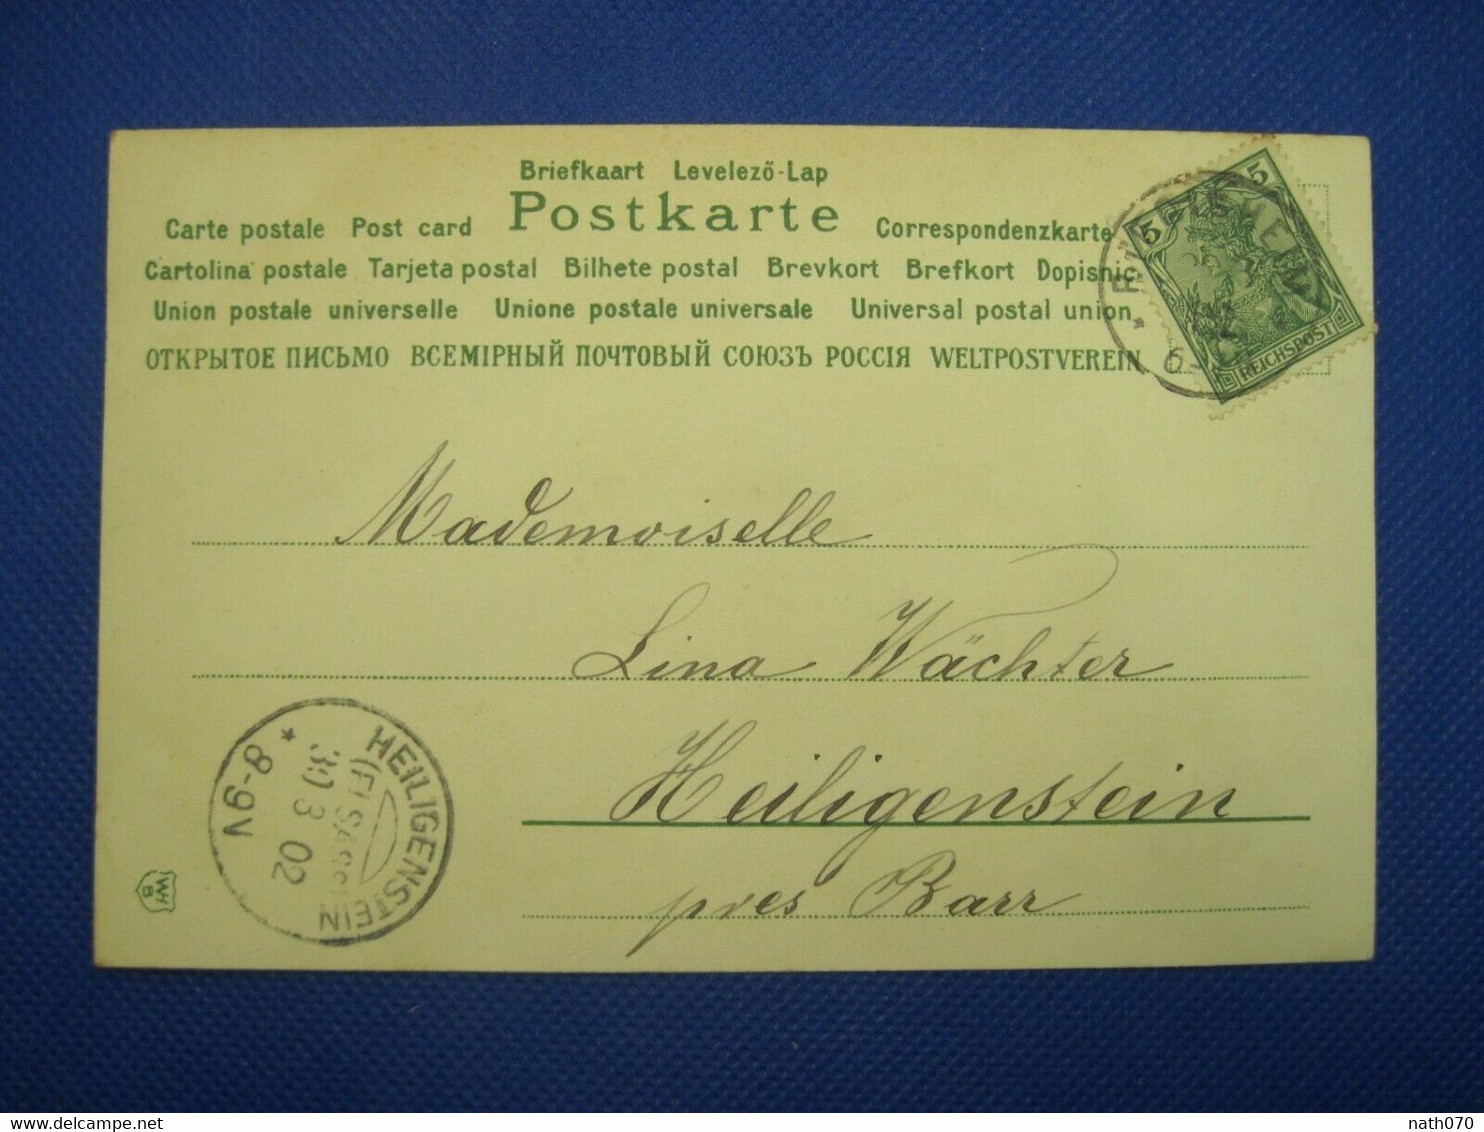 Briefkaart Levelező-Lap
Postkarte
Carte postale Post card Correspondenzkarte
Cartolina postale Tarjeta postal Bilhete postal Brevkort Brefkort Dopisnic
Union postale universelle Unione postale universale Universal postal union
ОТКРЫТОЕ ПИСЬМО ВСЕМІРНЫЙ ПОЧТОВЫЙ СОЮЗЪ РОССІЯ WELTPOSTVEREIN.
5 5
REICHSPOST
Mademoiselle
Lina Wächter
Heiligenstein
pres Barr
HEILIGENSTEIN
(ELSASS)
30 3 02
* 8-9V
WH
B
delcampe.net
nath070